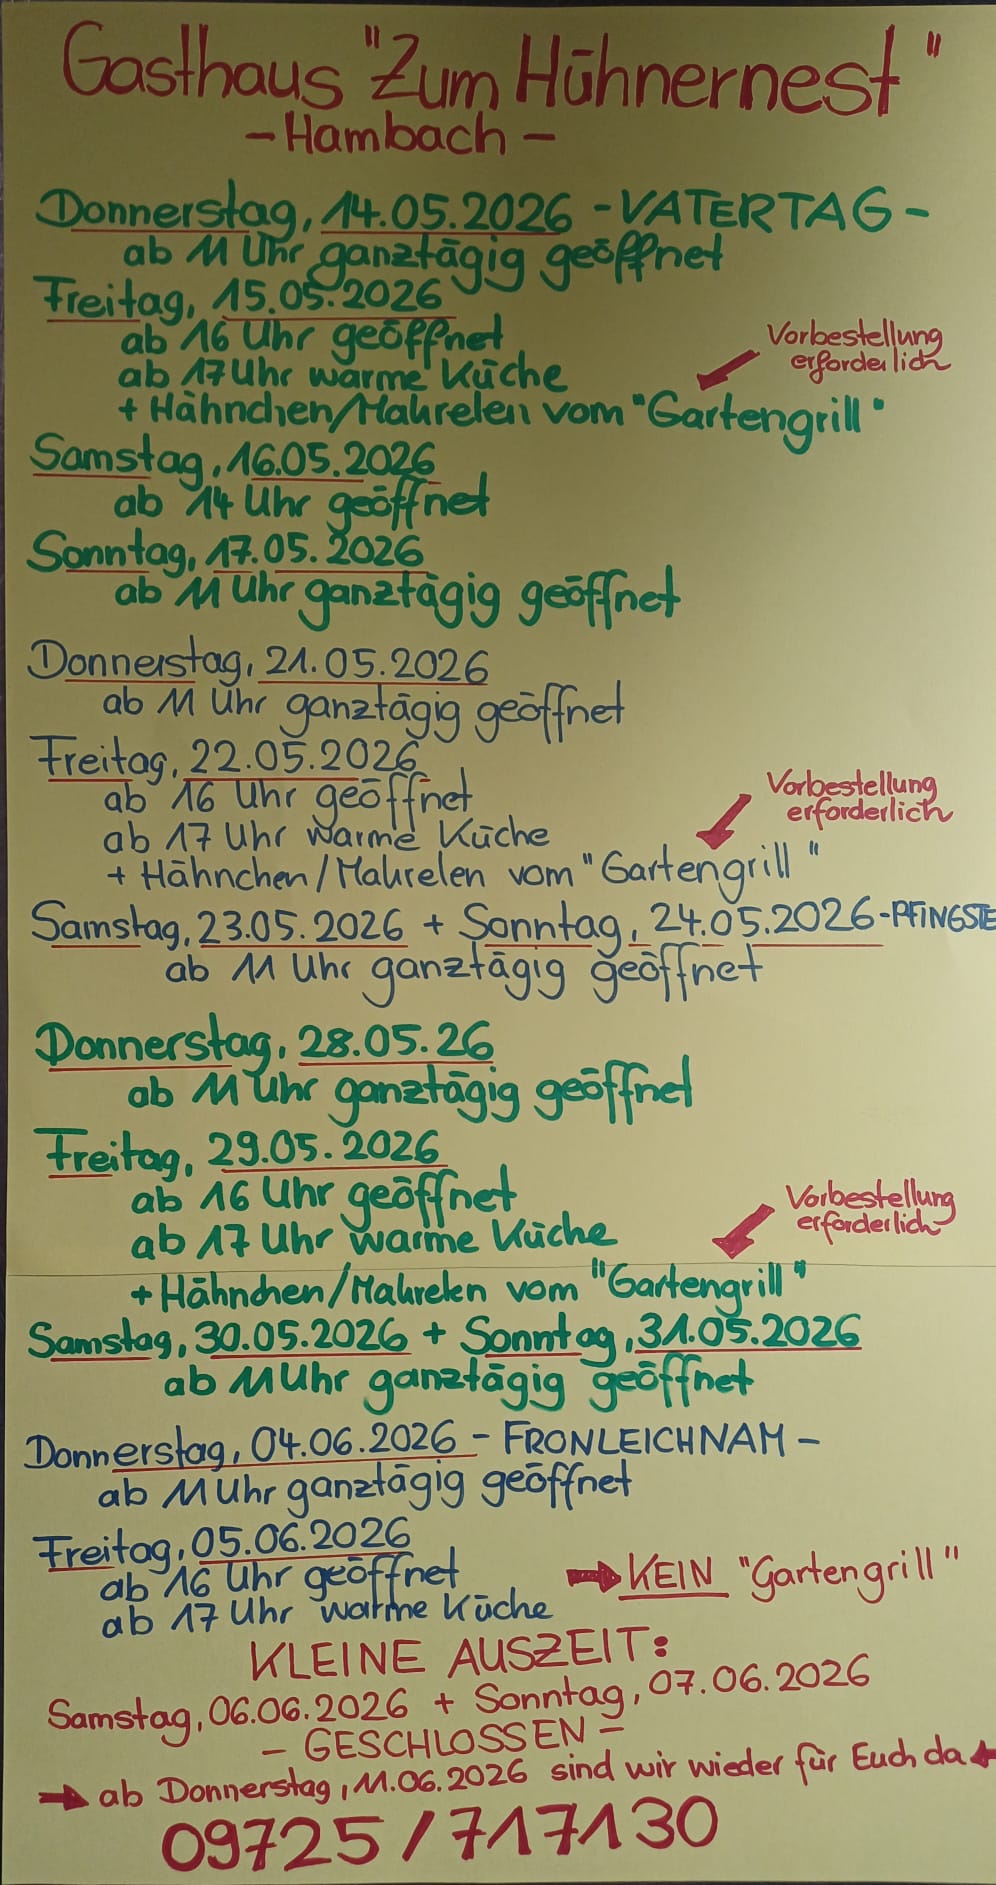 Gasthaus "Zum Hühnernest"
- Hambach -
Donnerstag, 14.05.2026 - VATERTAG -
ab 11 Uhr ganztägig geöffnet
Freitag, 15.05.2026
ab 16 Uhr geöffnet
ab 17 Uhr warme Küche
Vorbestellung
erforderlich
+ Hähnchen/Makrelen vom "Gartengrill"
Samstag, 16.05.2026
ab 14 Uhr geöffnet
Sonntag, 17.05.2026
ab 11 Uhr ganztägig geöffnet
Donnerstag, 21.05.2026
ab 11 Uhr ganztägig geöffnet
Freitag, 22.05.2026
ab 16 Uhr geöffnet
ab 17 Uhr warme Küche
Vorbestellung
erforderlich
+ Hähnchen/Makrelen vom "Gartengrill"
Samstag, 23.05.2026 + Sonntag, 24.05.2026 - PFINGSTE
ab 11 Uhr ganztägig geöffnet
Donnerstag, 28.05.26
ab 11 Uhr ganztägig geöffnet
Freitag, 29.05.2026
ab 16 Uhr geöffnet
ab 17 Uhr warme Küche
Vorbestellung
erforderlich
+ Hähnchen/Makrelen vom "Gartengrill"
Samstag, 30.05.2026 + Sonntag, 31.05.2026
ab 11 Uhr ganztägig geöffnet
Donnerstag, 04.06.2026 - FRONLEICHNAM -
ab 11 Uhr ganztägig geöffnet
Freitag, 05.06.2026
ab 16 Uhr geöffnet
→ KEIN "Gartengrill"
ab 17 Uhr warme Küche
KLEINE AUSZEIT:
Samstag, 06.06.2026 + Sonntag, 07.06.2026
- GESCHLOSSEN -
→ ab Donnerstag, 11.06.2026 sind wir wieder für Euch da ←
09725/717130